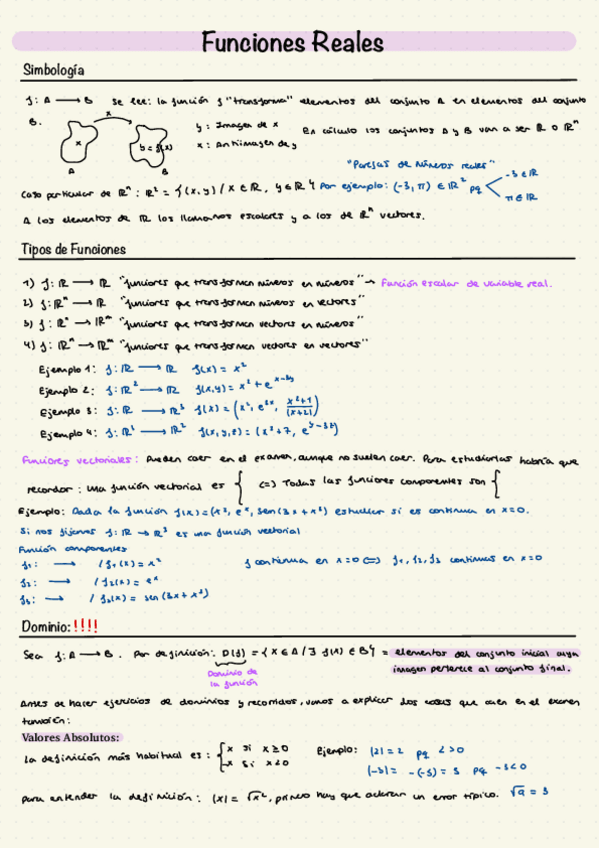 Funciones Reales
Simbología
f: A → B se lee: la función f "transforma" elementos del conjunto A en elementos del conjunto
B.
x
x
y = f(x)
A
B
y : Imagen de x
x : Antiimagen de y
En cálculo los conjuntos A y B van a ser ℝ o ℝⁿ
"Parejas de números reales"
Caso particular de ℝⁿ : ℝ² = {(x,y) / x ∈ ℝ, y ∈ ℝ} Por ejemplo: (-3, π) ∈ ℝ² pq
-3 ∈ ℝ
π ∈ ℝ
A los elementos de ℝ los llamamos escalares y a los de ℝⁿ vectores.
Tipos de Funciones
1) f: ℝ → ℝ "funciones que transforman números en números" → Función escalar de variable real.
2) f: ℝⁿ → ℝ "funciones que transforman números en vectores"
3) f: ℝⁿ → ℝᵐ "funciones que transforman vectores en números"
4) f: ℝⁿ → ℝᵐ "funciones que transforman vectores en vectores"
Ejemplo 1: f: ℝ → ℝ f(x) = x²
Ejemplo 2: f: ℝ² → ℝ f(x,y) = x² + e
Ejemplo 3: f: ℝ → ℝ³ f(x) =
Ejemplo 4: f: → ℝ² f(x,y,z) =
Funciones vectoriales: Pueden caer en el examen, aunque no suelen caer. Para estudiarlas habría que
recordar: una función vectorial es { (=) Todas las funciones componentes son {
Ejemplo: Dada la función f(x) = eˣ, sen estudiar si es continua en x=0.
Si nos fijamos f: ℝ → ℝ³ es una función vectorial
Función componentes
f₁: → / f₁(x) =
f₂: → / f₂(x) = eˣ
f₃: → / f₃(x) = sen
f continua en x=0 ⟺ f₁, f₂, f₃ continuas en x=0
Dominio: !!!!
Sea f: A → B. Por definición: D(f) = {x ∈ A / ∃ f(x) ∈ B} = elementos del conjunto inicial cuya
imagen pertenece al conjunto final.
Dominio de
la función
Antes de hacer ejercicios de dominios y recorridos, vamos a explicar dos cosas que caen en el examen
también:
Valores Absolutos:
La definición más habitual es: { x si x ≥ 0
-x si x < 0
Ejemplo: |2| = 2 pq 2 > 0
|-3| = -(-3) = 3 pq -3 < 0
Para entender la definición: |x| = √x², primero hay que aclarar un error típico. = 3